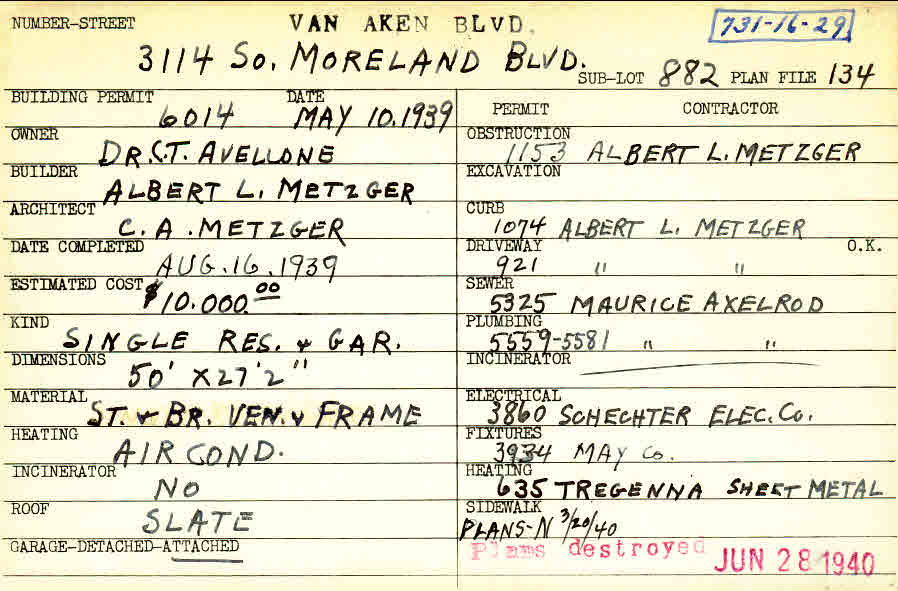 NUMBER-STREET VAN AKEN BLVD. 731-16-29
3114 So. MORELAND BLVD. SUB-LOT 882 PLAN FILE 134
BUILDING PERMIT DATE
6014 MAY 10.1939
OWNER
DR.C.T. AVELLONE
BUILDER
ALBERT L. METZGER
ARCHITECT
C. A. METZGER
DATE COMPLETED
AUG.16.1939
ESTIMATED COST $10.000.00
KIND
SINGLE RES. & GAR.
DIMENSIONS
50' X27'2"
MATERIAL
ST. & BR. VEN. & FRAME
HEATING
AIR COND.
INCINERATOR
NO
ROOF
SLATE
GARAGE-DETACHED-ATTACHED
PERMIT CONTRACTOR
OBSTRUCTION
1153 ALBERT L. METZGER
EXCAVATION
CURB
1074 ALBERT L. METZGER
DRIVEWAY O.K.
921 " "
SEWER
5325 MAURICE AXELROD
PLUMBING
5559-5581 " "
INCINERATOR
ELECTRICAL
3860 SCHECHTER ELEC. Co.
FIXTURES
3934 MAY Co.
HEATING
635 TREGENNA SHEET METAL
SIDEWALK
PLANS-N 3/20/40
Plans destroyed JUN 28 1940